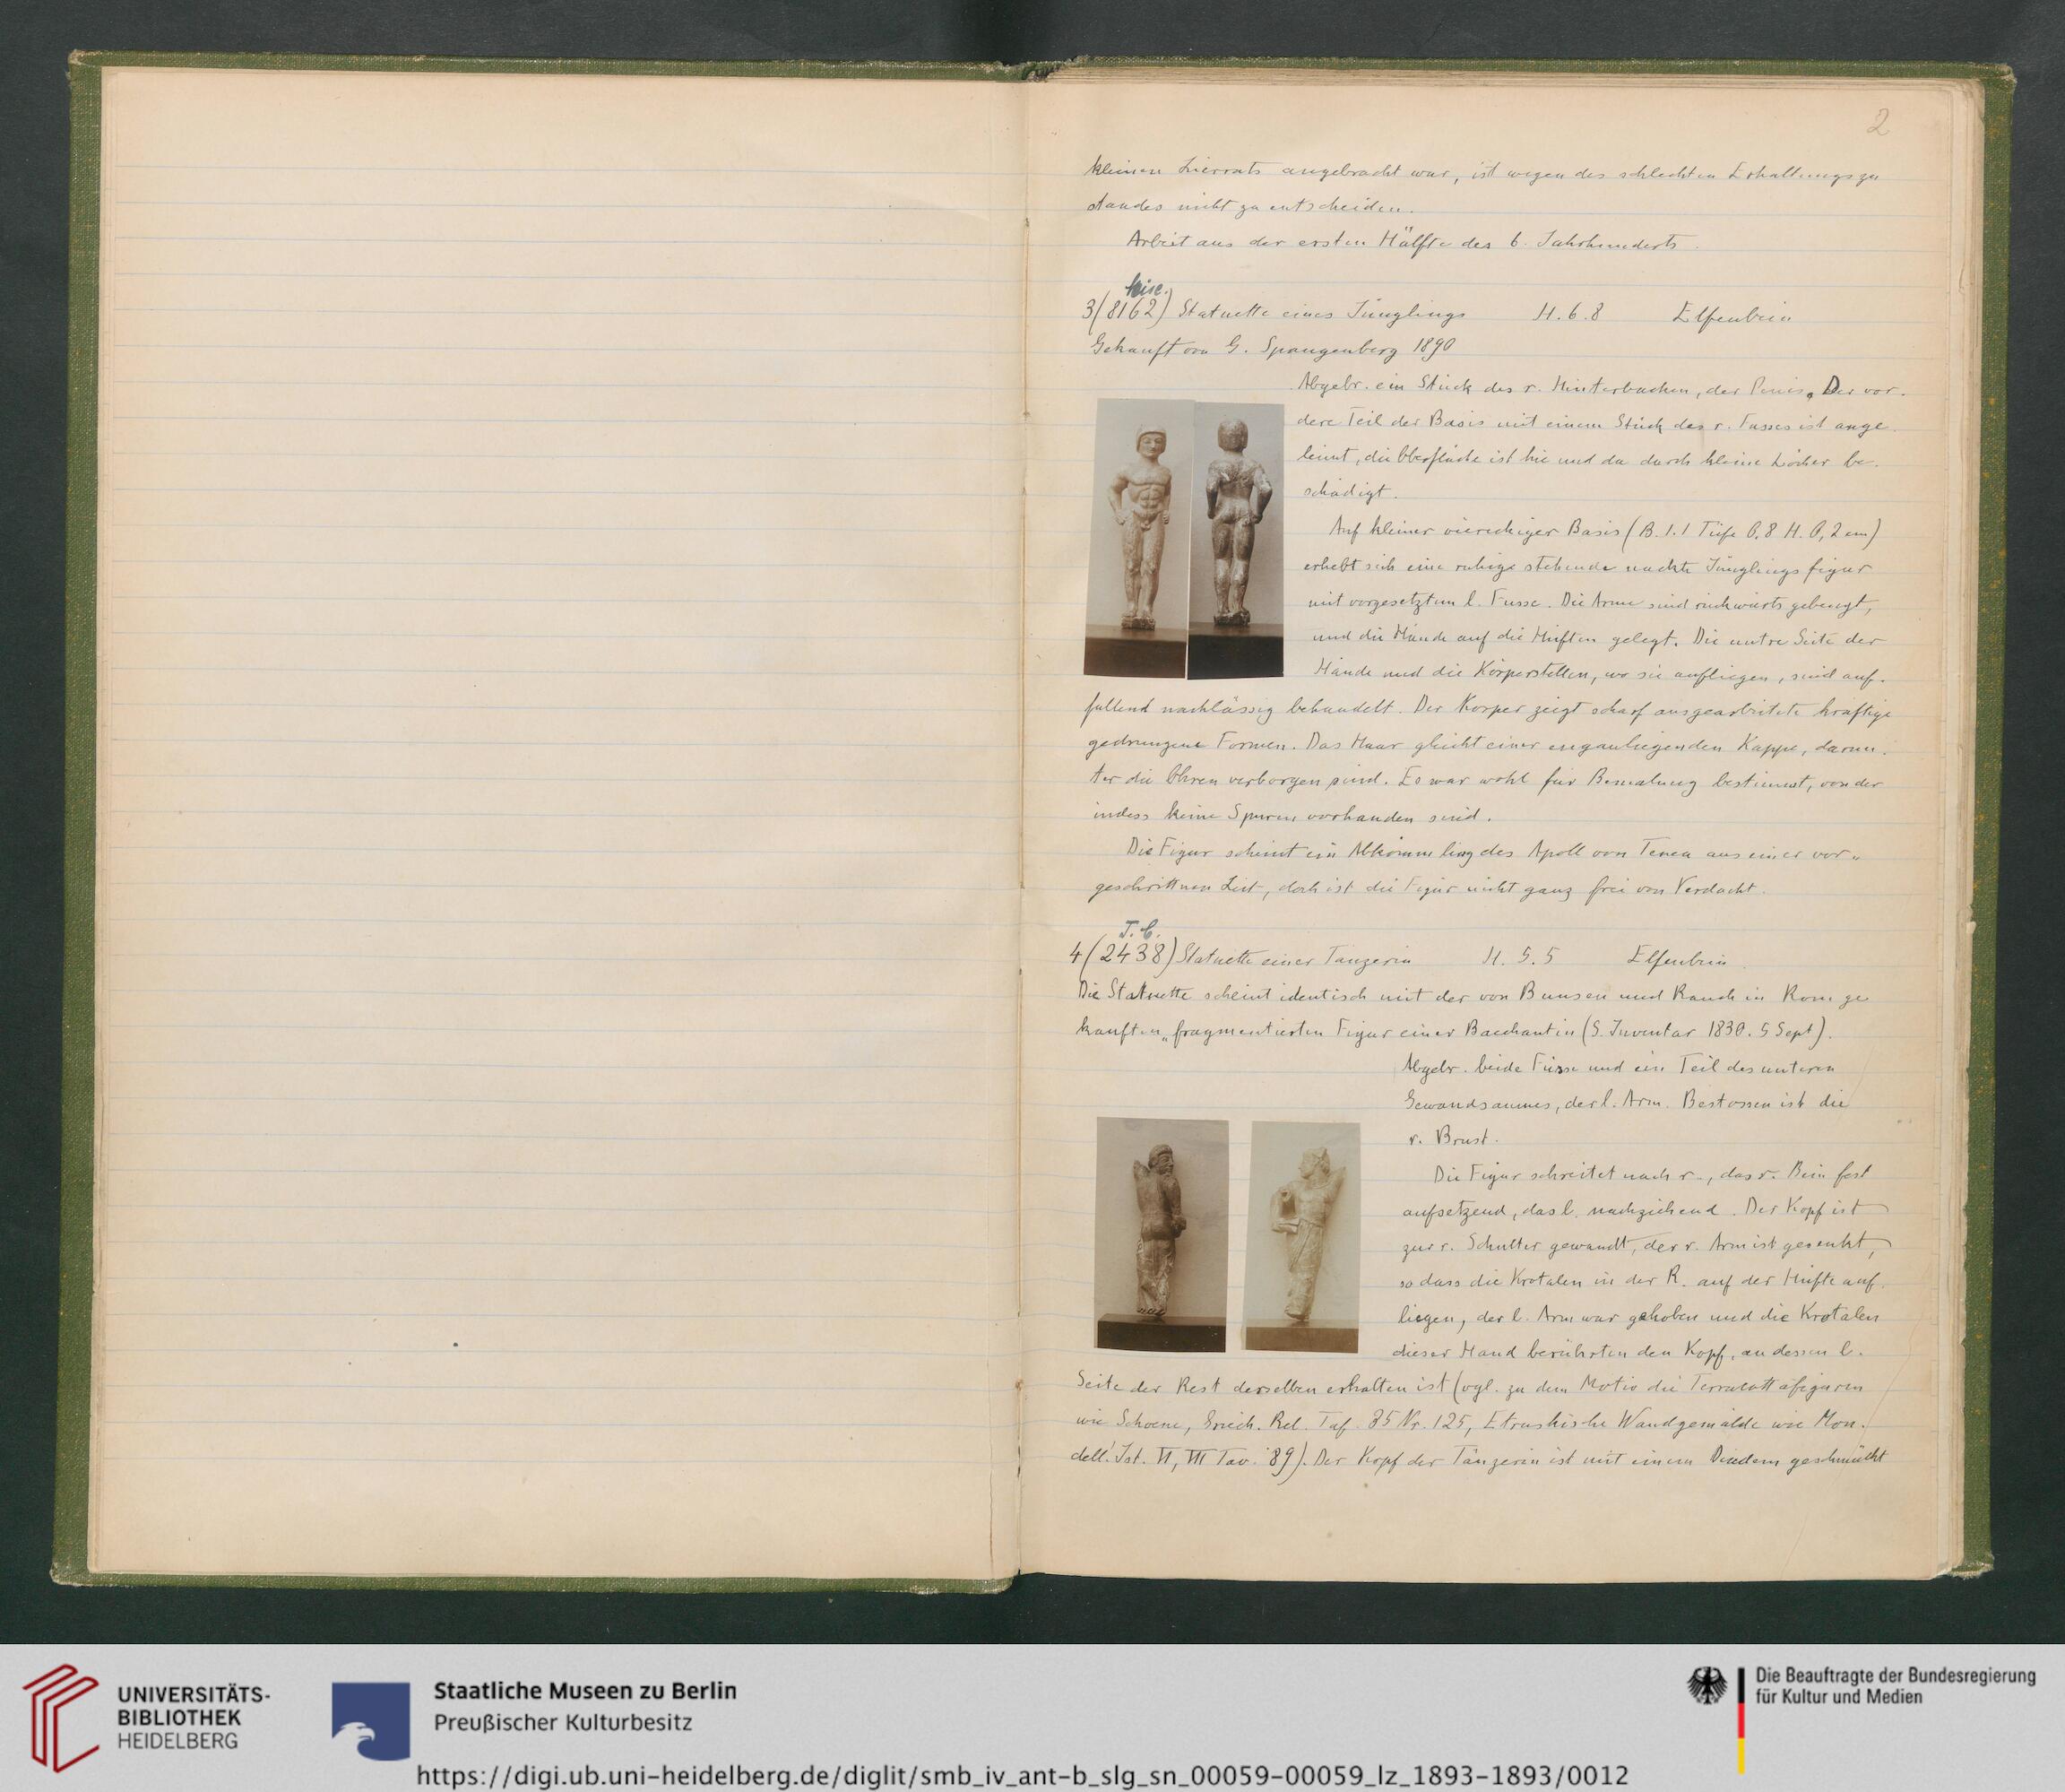 2
kleinen Zierrats angebracht war, ist wegen des schlechten Erhaltungszu
standes nicht zu entscheiden.
Arbeit aus der ersten Hälfte des 6. Jahrhunderts.
Misc.
3(8162) Statuette eines Jünglings H. 6.8 Elfenbein
Gekauft von G. Spangenberg 1890
Abgebr. ein Stück des r. Hinterbacken, der Penis. Der vor-
dere Teil der Basis mit einem Stück des r. Fusses ist ange
leimt, die Oberfläche ist hie und da durch kleine Löcher be-
schädigt.
Auf kleiner viereckiger Basis (B. 1.1 Tiefe 0,8 H. 0,2 cm)
erhebt sich eine ruhige stehende nackte Jünglingsfigur
mit vorgesetztem l. Fusse. Die Arme sind rückwärts gebeugt,
und die Hände auf die Hüften gelegt. Die untre Seite der
Hände und die Körperstellen, wo sie aufliegen, sind auf-
fallend nachlässig behandelt. Der Körper zeigt scharf ausgearbeitete kräftige
gedrungene Formen. Das Haar gleicht einer enganliegenden Kappe, darun-
ter die Ohren verborgen sind. Es war wohl für Bemalung bestimmt, von der
indess keine Spuren vorhanden sind.
Die Figur scheint ein Abkömmling des Apoll von Tenea aus einer vor-
geschrittnen Zeit, doch ist die Figur nicht ganz frei von Verdacht.
T. C.
4(2438) Statuette einer Tänzerin H. 5.5 Elfenbein
Die Statuette scheint identisch mit der von Bunsen und Rauch in Rom ge
kauften „fragmentierten Figur einer Bacchantin (S. Inventar 1830. 5 Sept).
Abgebr. beide Füsse und ein Teil des unteren
Gewandsaumes, der l. Arm. Bestossen ist die
r. Brust.
Die Figur schreitet nach r., das r. Bein fest
aufsetzend, das l. nachziehend. Der Kopf ist
zur r. Schulter gewandt, der r. Arm ist gesenkt,
so dass die Krotalen in der R. auf der Hüfte auf
liegen, der l. Arm war gehoben und die Krotalen
dieser Hand berührten den Kopf, an dessen l.
Seite der Rest derselben erhalten ist (vgl. zu dem Motiv die Terracottafiguren
wie Schoene, Griech. Rel. Taf. 35 Nr. 125, Etruskische Wandgemälde wie Mon.
dell'Ist. VI, VII Tav. 89). Der Kopf der Tänzerin ist mit einem Diadem geschmückt
UNIVERSITÄTS-
BIBLIOTHEK
HEIDELBERG
Staatliche Museen zu Berlin
Preußischer Kulturbesitz
Die Beauftragte der Bundesregierung
für Kultur und Medien
https://digi.ub.uni-heidelberg.de/diglit/smb_iv_ant-b_slg_sn_00059-00059_lz_1893-1893/0012